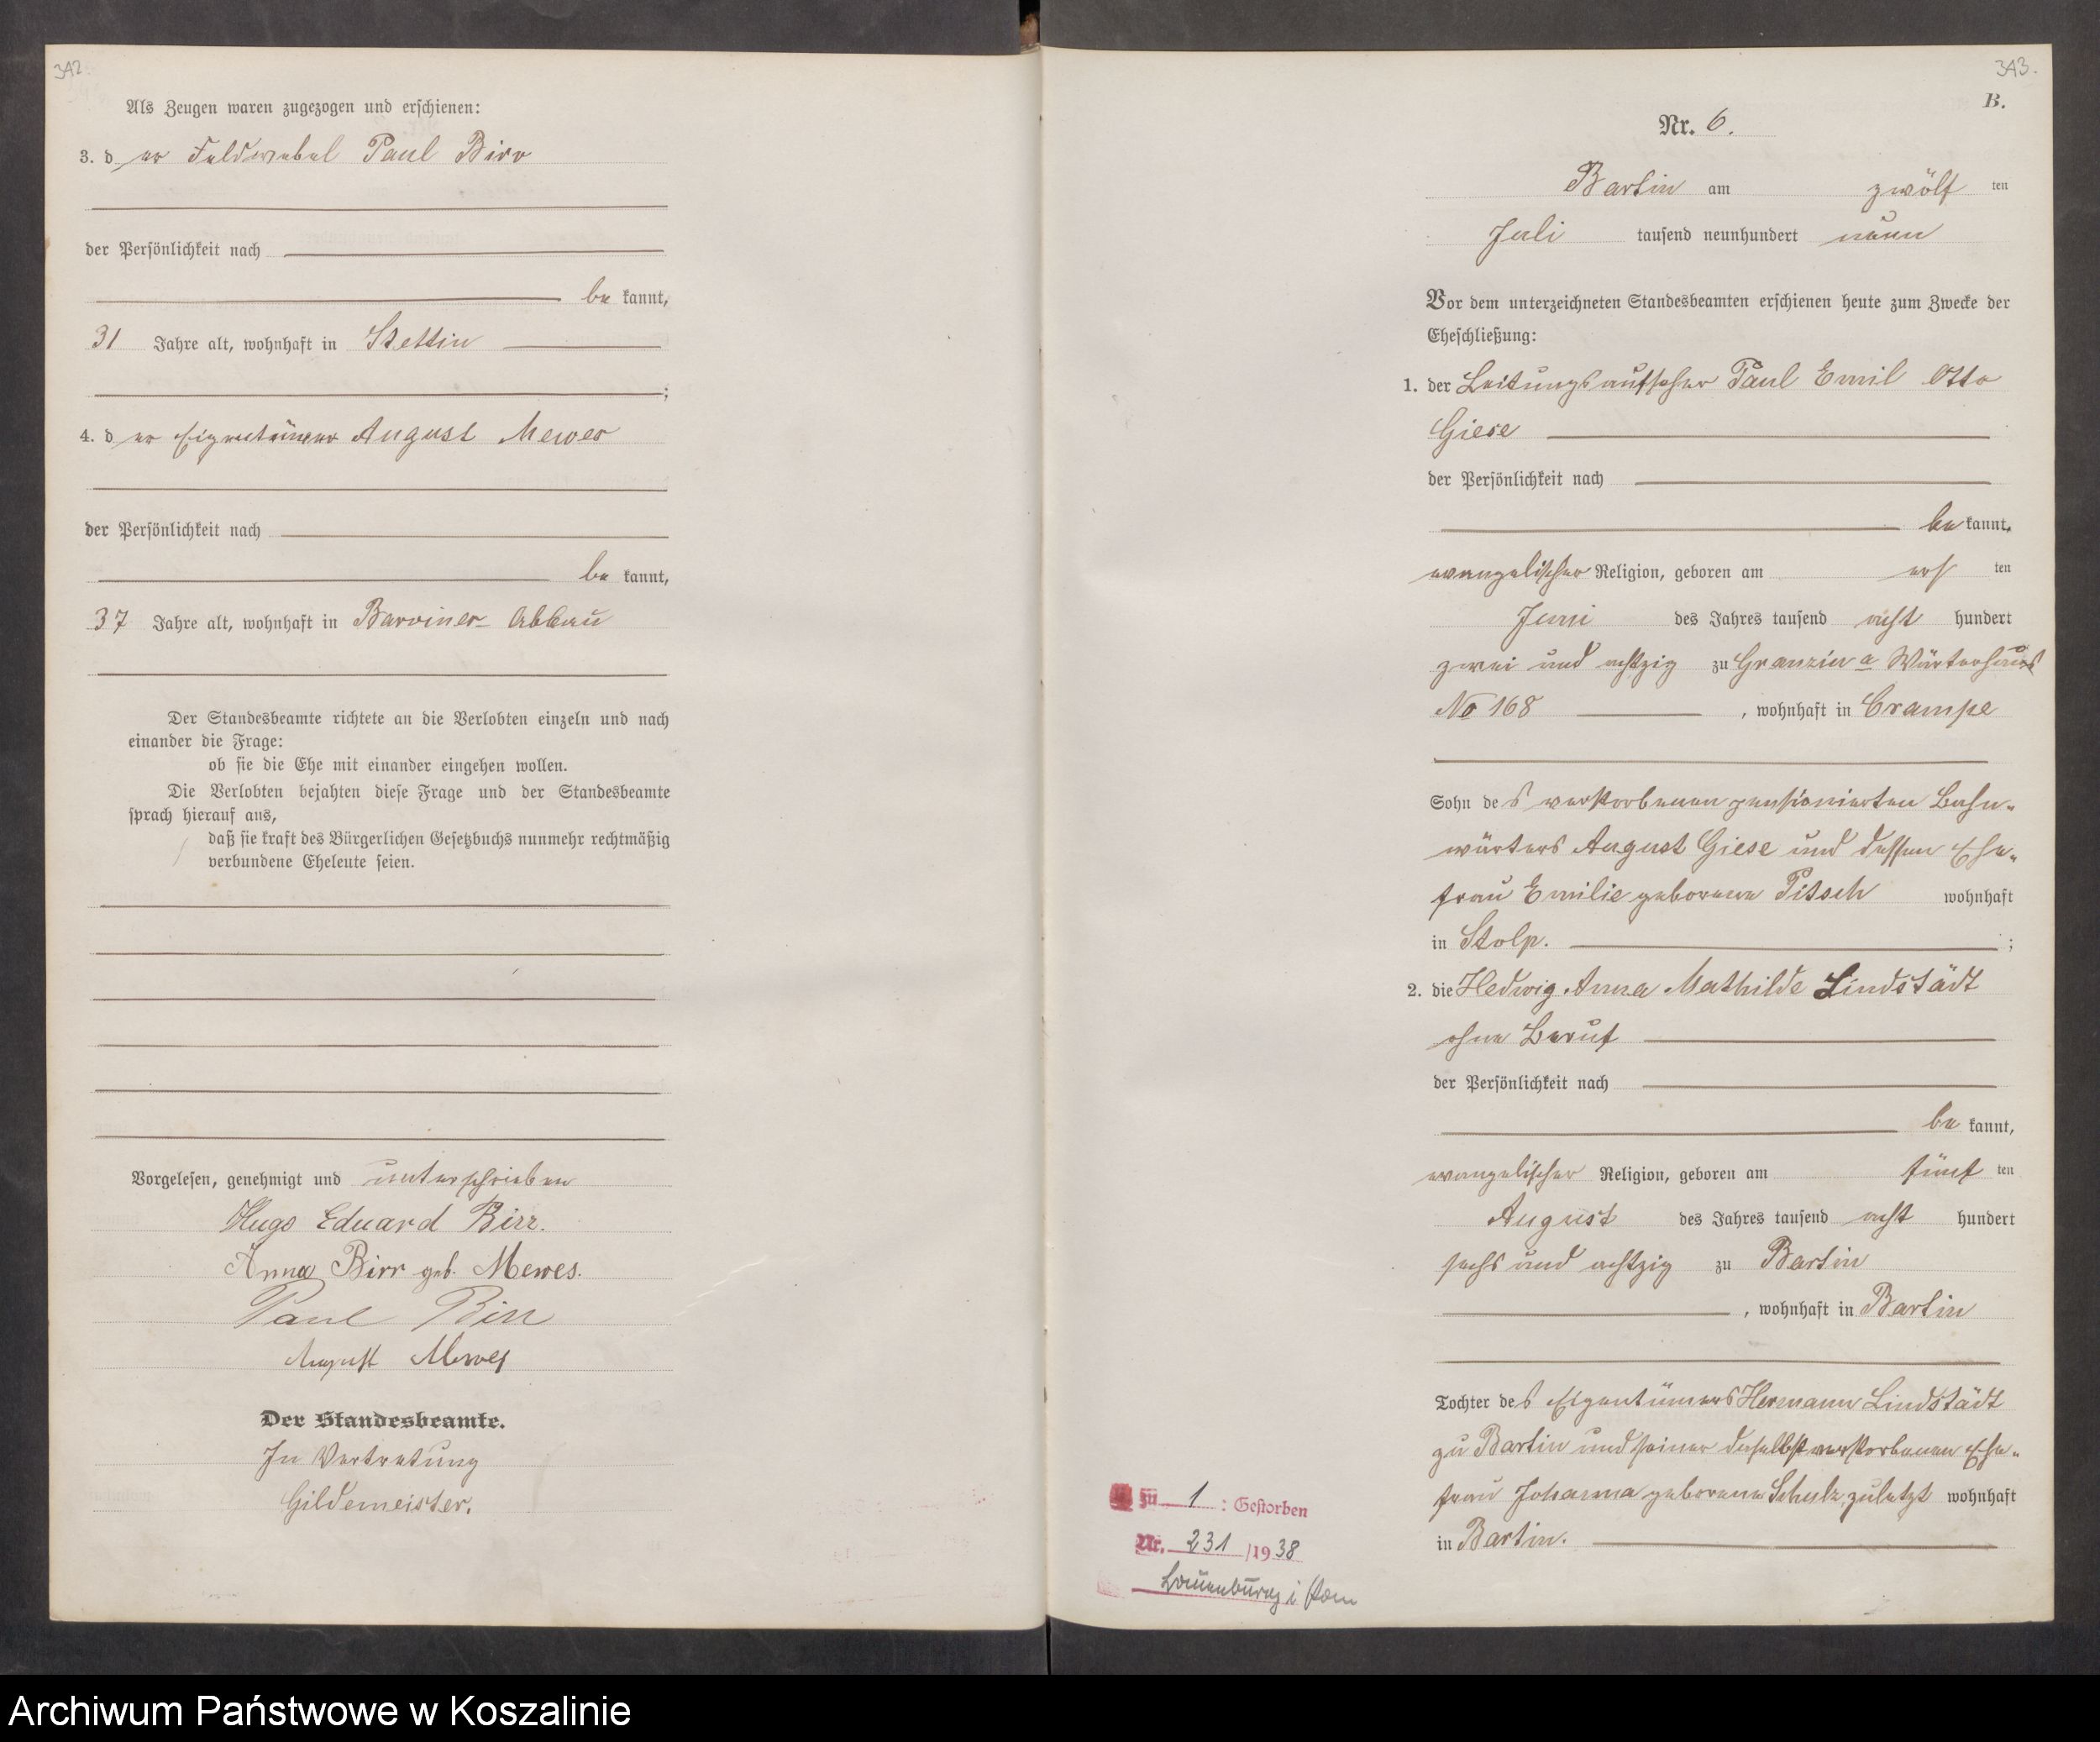 342.
Als Zeugen waren zugezogen und erschienen:
3. der Feldwebel Paul Birr
der Persönlichkeit nach
be kannt,
31 Jahre alt, wohnhaft in Stettin
;
4. der Eigentümer August Mewes
der Persönlichkeit nach
be kannt,
37 Jahre alt, wohnhaft in Barviner Abbau
Der Standesbeamte richtete an die Verlobten einzeln und nach
einander die Frage:
ob sie die Ehe mit einander eingehen wollen.
Die Verlobten bejahten diese Frage und der Standesbeamte
sprach hierauf aus,
daß sie kraft des Bürgerlichen Gesetzbuchs nunmehr rechtmäßig
verbundene Eheleute seien.
Vorgelesen, genehmigt und unterschrieben
Hugo Eduard Birr.
Anna Birr geb. Mewes.
Paul Birr
August Mewes
Der Standesbeamte.
In Vertretung
Gildemeister.
343.
B.
Nr. 6.
Bartin am zwölf ten
Juli tausend neunhundert neun
Vor dem unterzeichneten Standesbeamten erschienen heute zum Zwecke der
Eheschließung:
1. der Leitungsaufseher Paul Emil Otto
Giese
der Persönlichkeit nach
be kannt,
evangelischer Religion, geboren am ers ten
Juni des Jahres tausend acht hundert
zwei und achtzig zu Granzin a Wärterhaus
No 168 , wohnhaft in Crampe
Sohn des verstorbenen pensionierten Bahn-
wärters August Giese und dessen Ehe-
frau Emilie geborene Pitsch wohnhaft
in Stolp. ;
2. die Hedwig Anna Mathilde Lindstädt
ohne Beruf
der Persönlichkeit nach
be kannt,
evangelischer Religion, geboren am fünf ten
August des Jahres tausend acht hundert
sechs und achtzig zu Bartin
, wohnhaft in Bartin
Tochter des Eigentümers Hermann Lindstädt
zu Bartin und seiner daselbst verstorbenen Ehe-
frau Johanna geborene Schulz, zuletzt wohnhaft
in Bartin.
Zu 1 : Gestorben
Nr. 231 /1938
Lauenburg i Pom
Archiwum Państwowe w Koszalinie